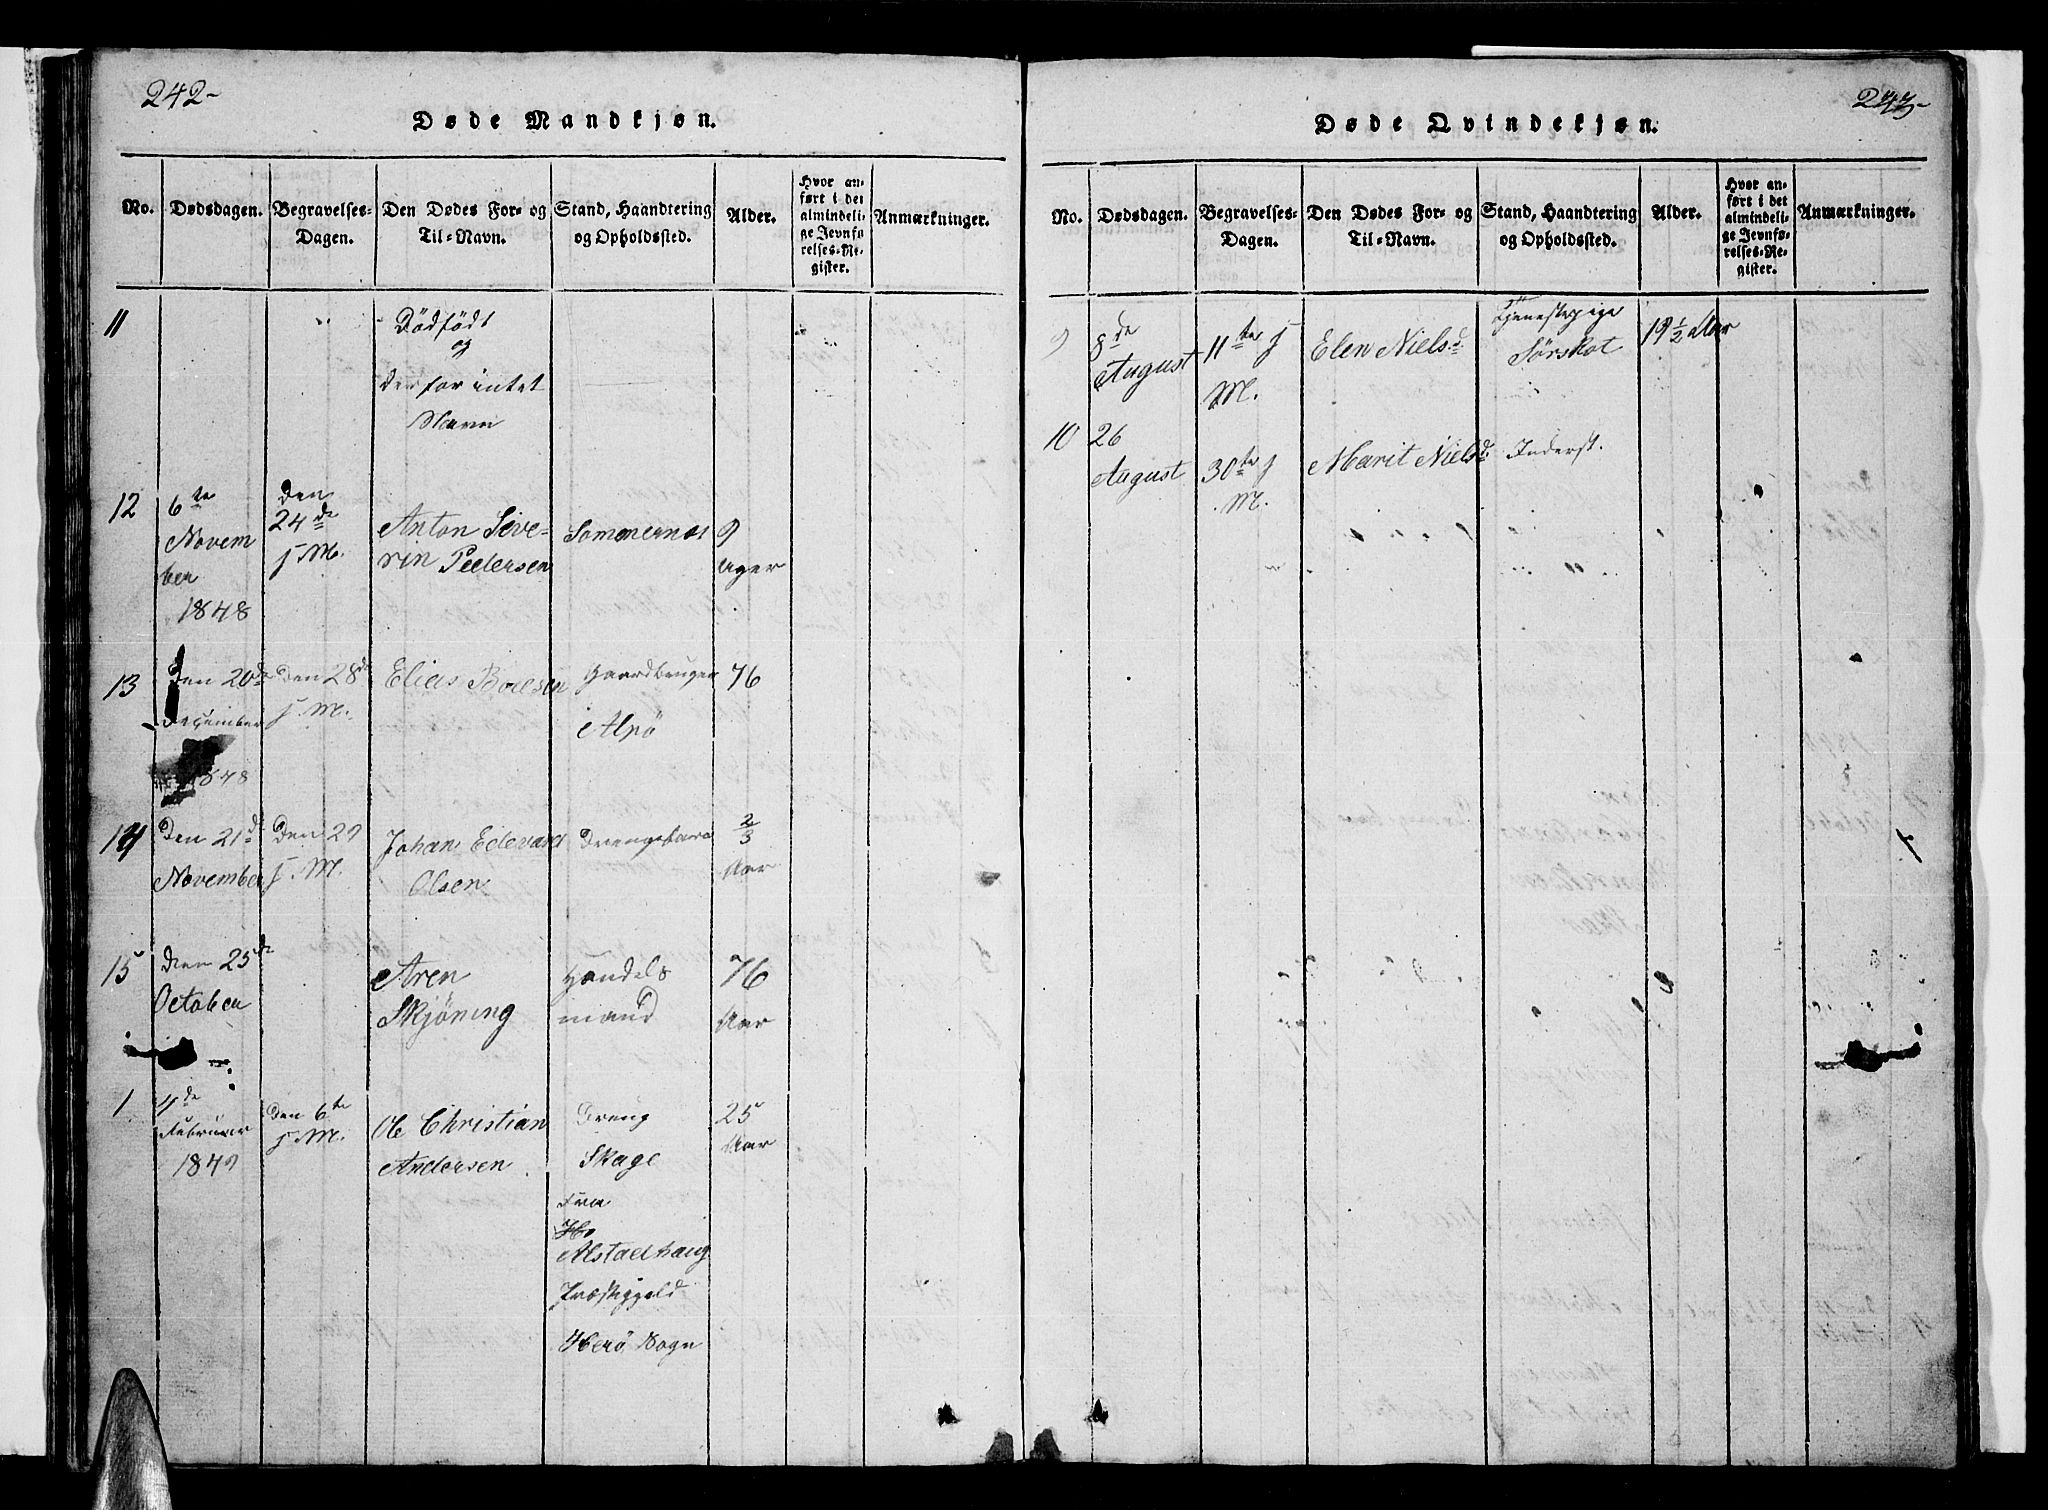 242-
Døde Mandkjøn.
No.
Dødsdagen.
Begravelses-
Dagen.
Den Dødes For- og
Til-Navn.
Stand, Haandtering
og Opholdssted.
Alder.
Hvor an-
ført i det
almindeli-
ge Jevnfø-
relses-Re-
gister.
Anmærkninger.
11
Dödfödt
og
derfor intet
Navn
12
6te
Novem
ber
1848
den
24de
j. M.
Anton Seve-
rin Pedersen
Sommernes
9
uger
13
Den 20de
December
1848
Den 28de
j. M.
Elias Boelsen
Gaardbruger
Alnö
76
14
Den 21de
November
Den 29
j. M.
Johan Edevard
Olsen
Drengebarn
2/3
Aar
15
Den 25de
October
Aren
Skjöning
Handels
mand
76
Aar
1
4de
Februar
1849
Den 6te
j. M.
Ole Christian
Andersen
Dreng
Skage
Fra
Ho
Alstaelhaug
Præstegjeld
Herö Sogn
25
Aar
243-
Døde Qvindekjøn.
No.
Dødsdagen.
Begravelses-
Dagen.
Den Dødes For- og
Til-Navn.
Stand, Haandtering
og Opholdssted.
Alder.
Hvor an-
ført i det
almindeli-
ge Jevnfø-
relses-Re-
gister.
Anmærkninger.
9
8de
August
11te j
M.
Elen Nielsd
Tjenestepige
Sörskot
19 1/2 Aar
10
26
August
30te j
M.
Marit Nielsd
Inderst.